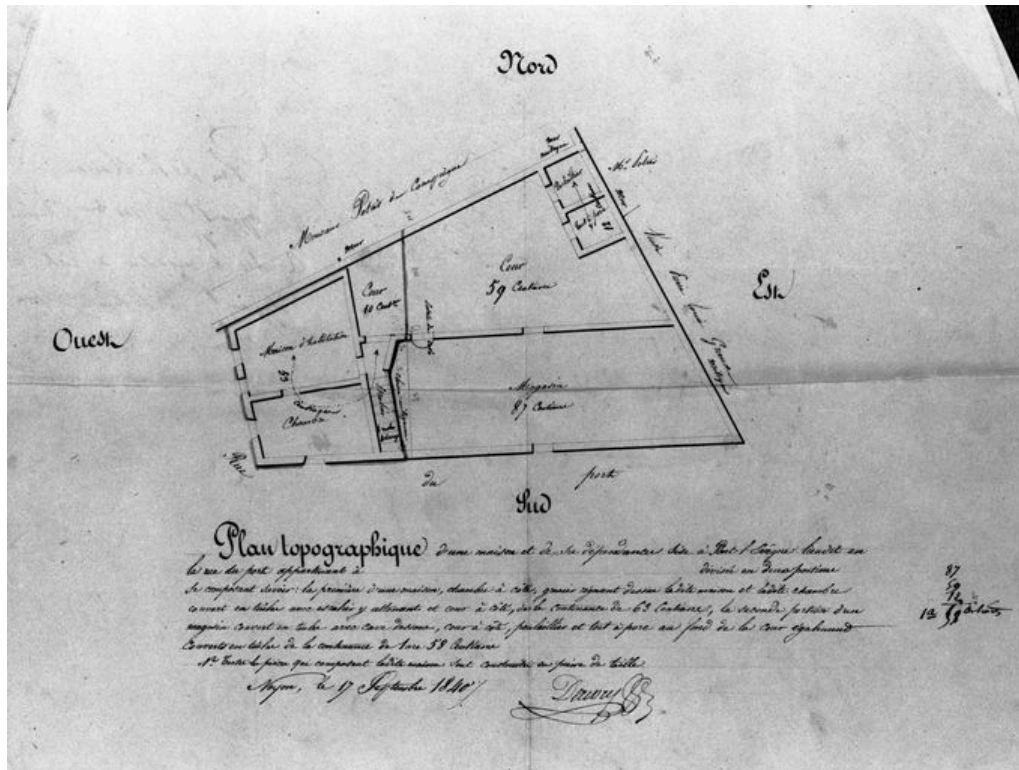 Nord
Monsieur Potris de Compiègne
mur
mur mitoyen
Mr Potris
mur
Poulailler
12
Est
Cour
10 Cent.
Cour
59 Centiare
Ouest
Maison d'habitation
53
Chambre
Escalier
Magasin
87 Centiare
Rue du port
Sud
Plan topographique d'une maison et de ses dépendances sise à Pont l'Evêque lieudit en
la rue du port appartenant à divisée en deux portions
Se composent savoir: la première d'une maison, chambre à côté, grenier régnant dessus ladite maison et ladite chambre
couvert en tuiles avec escalier y attenant et cour à côté, de la contenance de 63 Centiare, la seconde portion d'un
magasin couvert en tuile avec cave dessous, cour à côté, poulailler et toit à porc au fond de la cour également
Couverts en tuiles de la contenance de 1 are 58 Centiare
Nta Toutes les pièces qui composent ladite maison sont construites en pierre de taille
Noyon, le 17 Septembre 1840
87
59
12